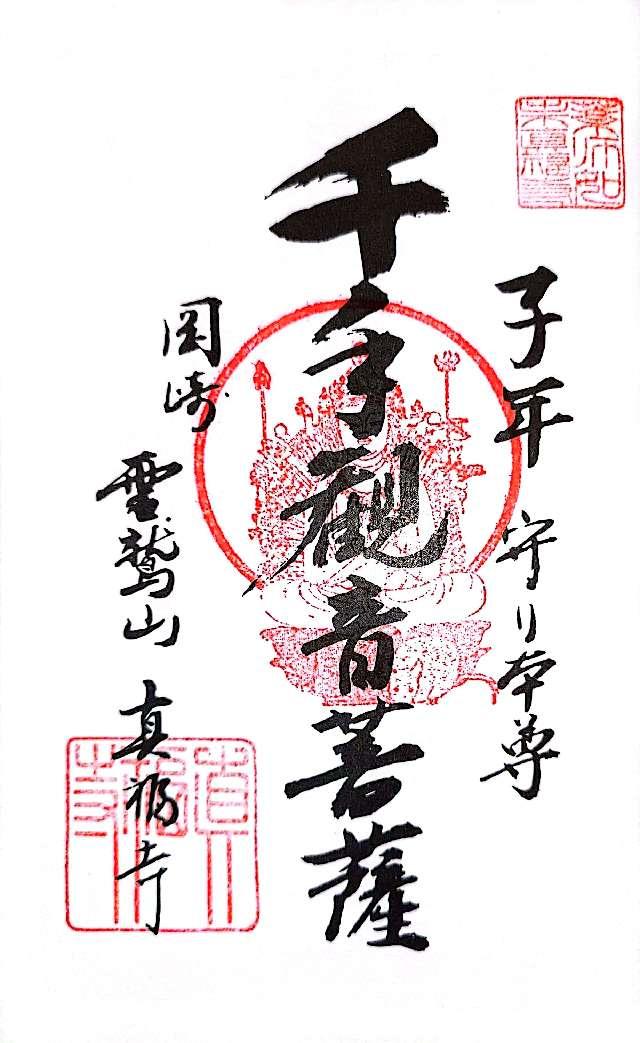 子年 守り本尊
千手觀音菩薩
岡崎 霊鷲山 真福寺
真福寺